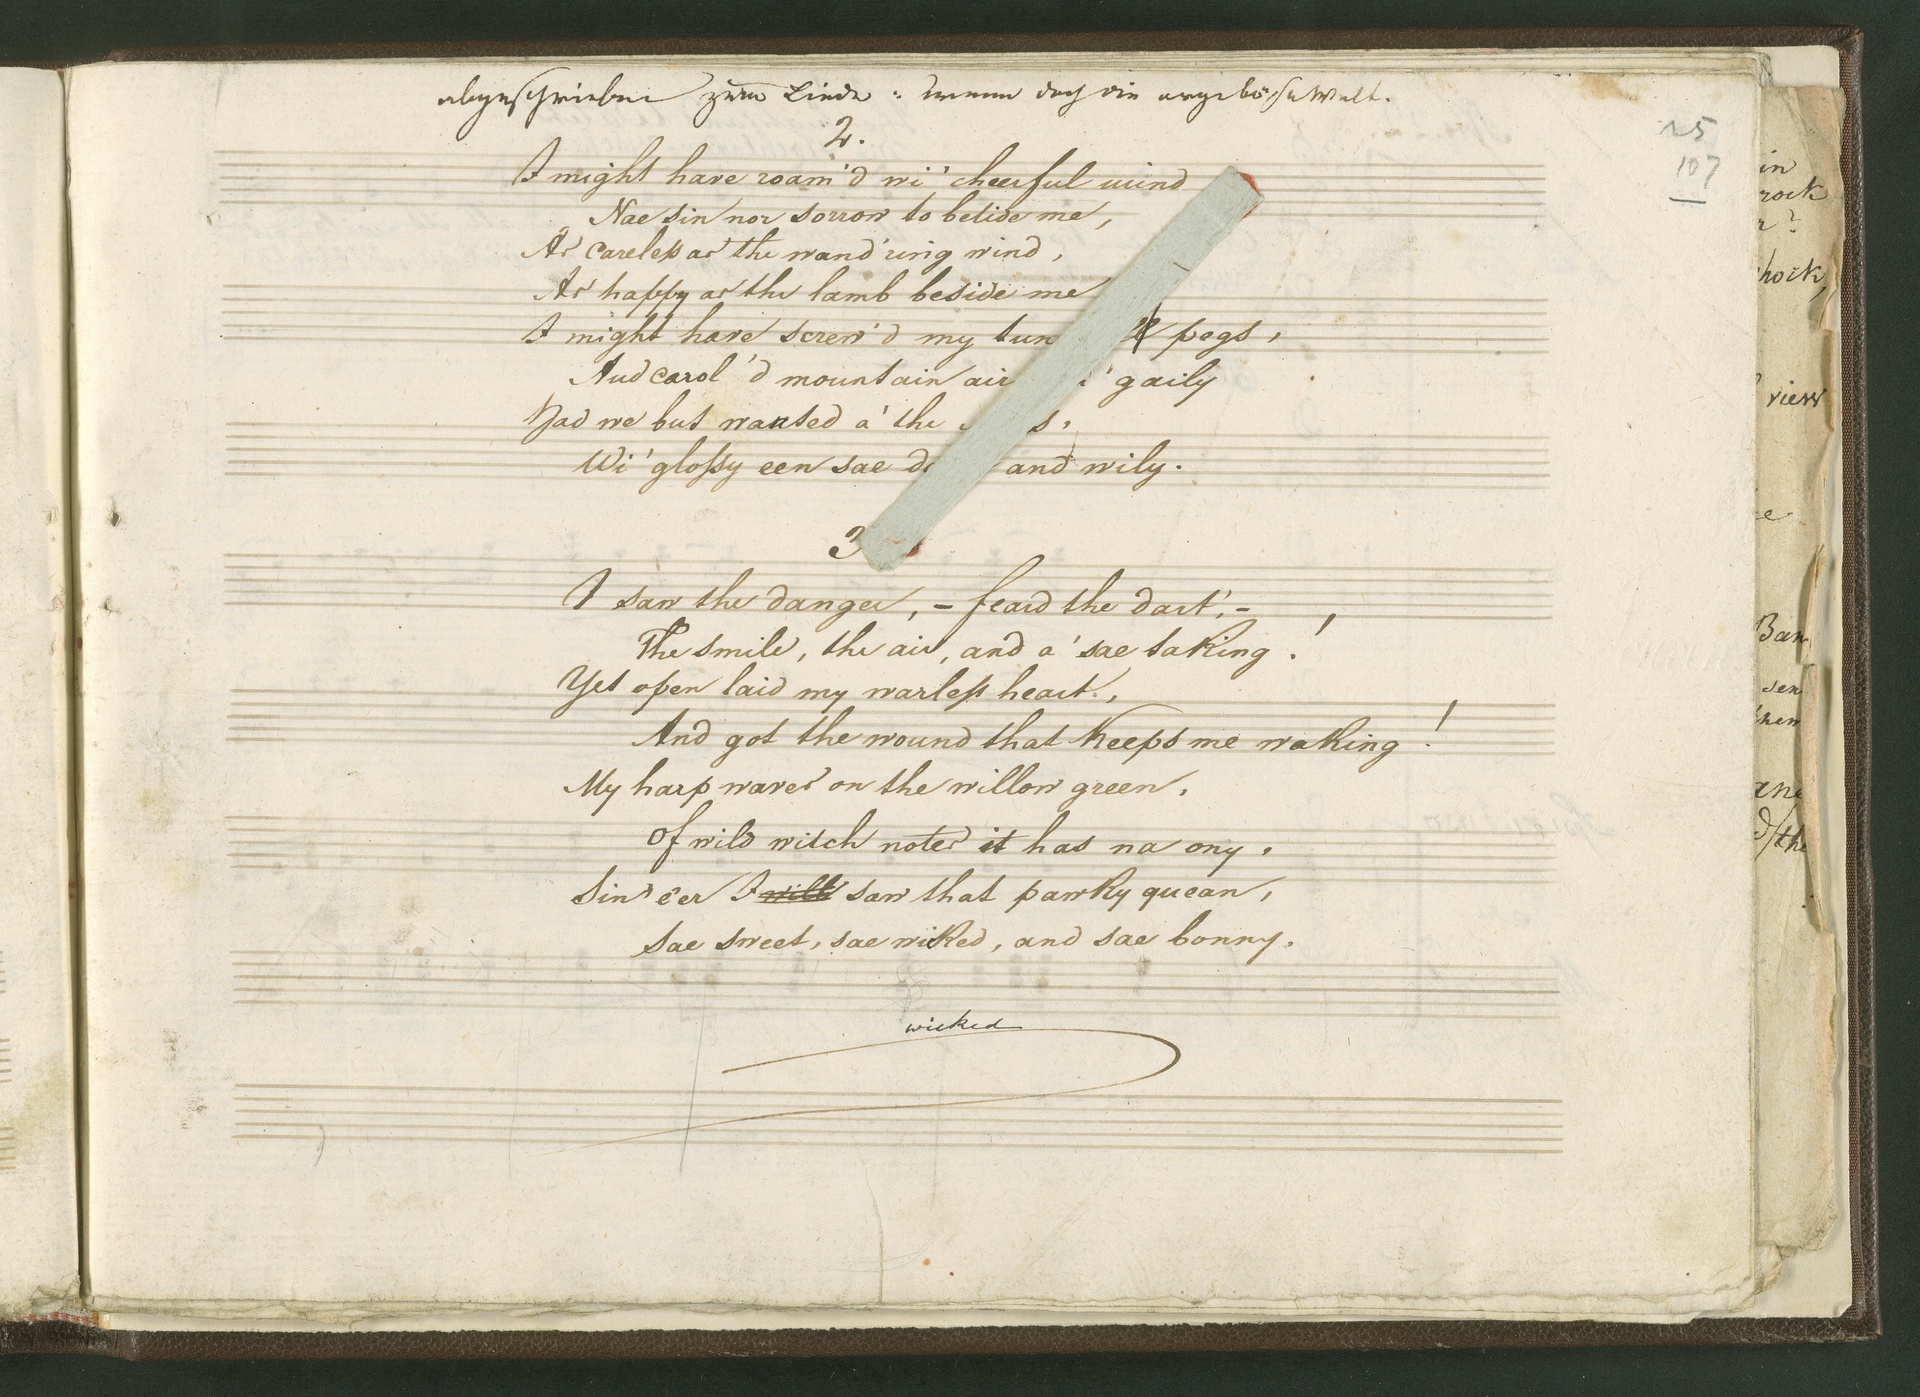 abgeschrieben zum Liede: wenn doch die arge böse Welt.
25
107
2.
I might have roam'd wi' cheerful mind
Nae sin nor sorrow to betide me,
As careless as the wand'ring wind,
As happy as the lamb beside me
I might have screw'd my tun pegs,
And carol'd mountain air gaily
Had we but wanted a' the s,
Wi' glossy een sae d and wily.
3
I saw the danger, – feard the dart, –
The smile, the air, and a' sae taking!
Yet open laid my warless heart,
And got the wound that keeps me waking!
My harp waves on the willow green,
Of wild witch notes it has na ony,
Sin' e'er I will saw that pawky quean,
Sae sweet, sae wiked, and sae bonny.
wicked
in
rock
r?
hock,
view
e
Ban
sen
them
ane
d/the